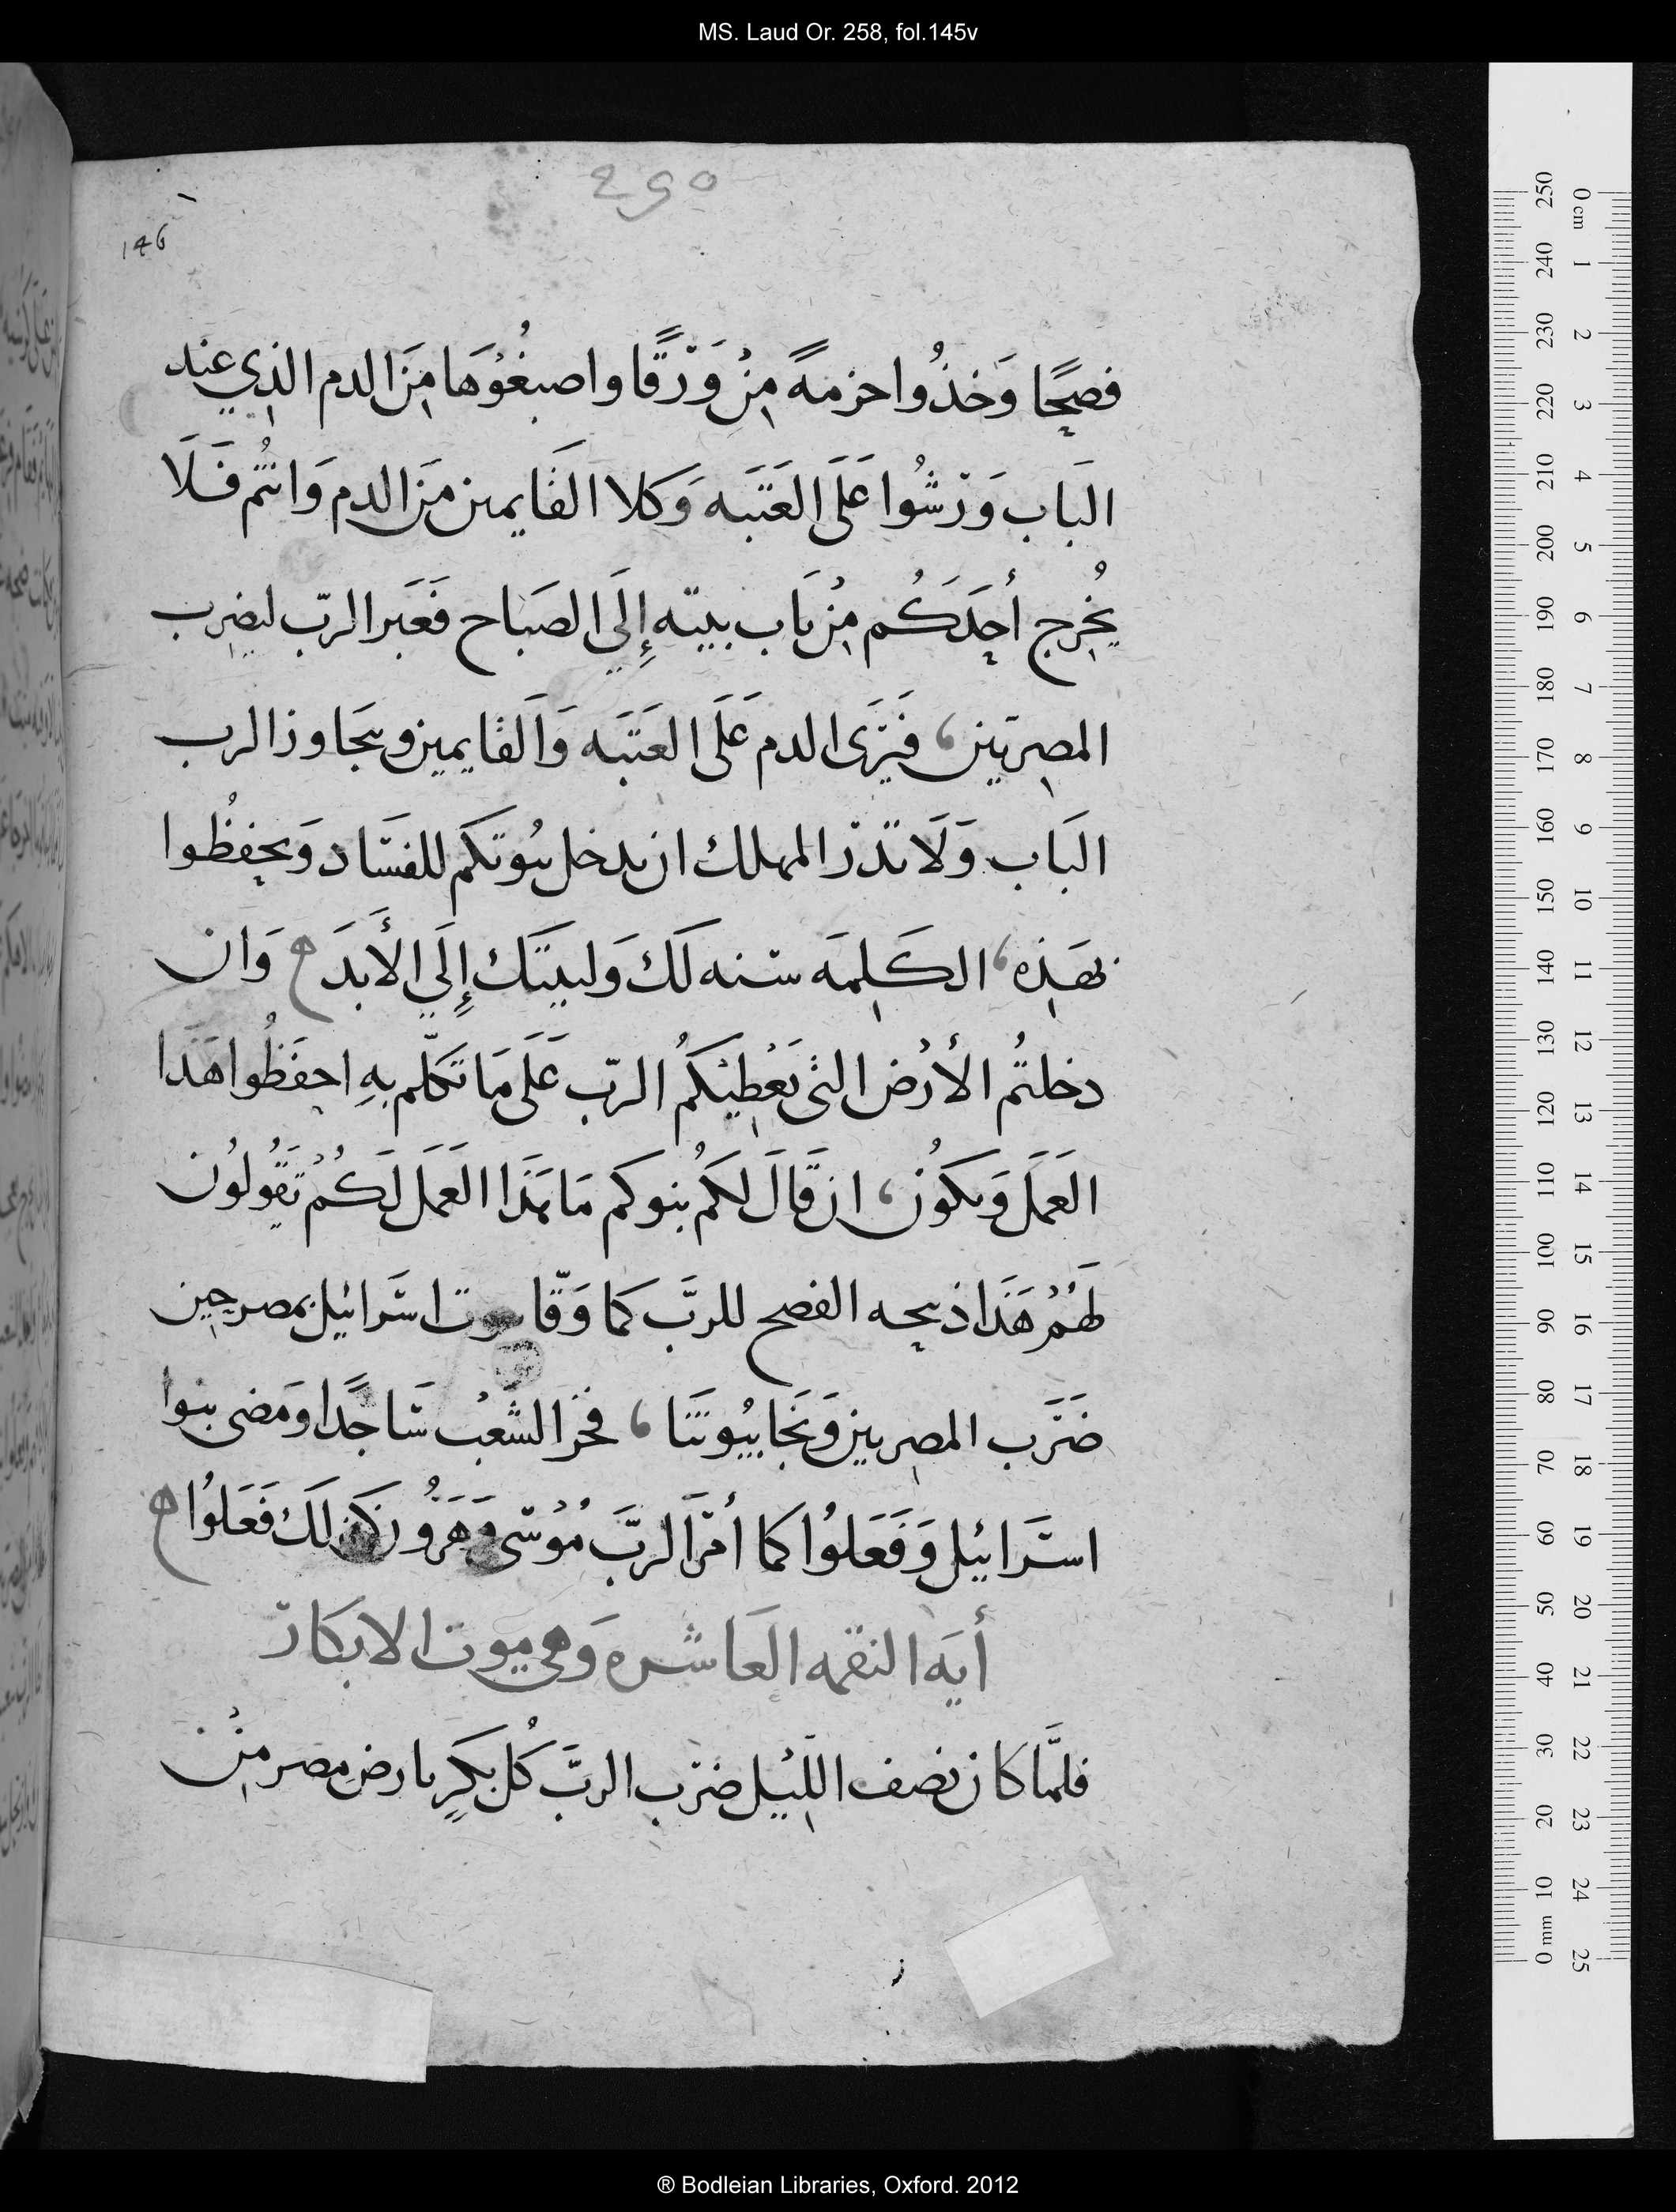 MS. Laud Or. 258, fol.145v
146
فصحًا وَخذُوا حزمةً مِنْ وَرَقًا واصبغُوْهَا مِنَ الدم الذِي عند
البَاب وَرْشُوا عَلَى العَتَبَه وَكلا القَايمين مِنَ الدم وَانتُم فَلَا
يخُرِج أحَدَكُم مِنْ بَاب بيته إِلَي الصَبَاح فَعَبَر الربّ ليضرِب
المصرِيّين، فَيَرَى الدم عَلَى العَتَبَه وَالقَايمين ويتجَاوز الرب
البَاب وَلَا تذر المهلك ان يدخل بيُوتكم للفسَاد وَيحفِظُوا
بهَذِه، الكَلِمَه سنه لَكَ وَلبيتَك إِلَي الأَبدَ ه وَان
دخلتُم الأرْض التى يَعْطِيْكُم الربّ عَلَى مَا تكَلّم بهِ احفَظُوا هَذا
العَمَلَ وَيكوُن، ان قَالَ لكُم بنوكم مَا هَذَا العَمَل لَكُمْ تقُولوُن
لَهُمْ هَذَا ذبيحه الفصح للربّ كما وَقّا بيوت اسَرائيل بمصر حِين
ضَرَب المصرِيين وَنَجَا بيُوتنَا، فخر الشَعْب سَاجدًا وَمَضى بنوا
اسَرائيل وَفَعَلوُا كما أمَرَ الربّ مُوْسَى وَهَرُون كَذَلك فَعَلوُا ه
أيَه النقمه العَاشره وَهى موت الابكار
فلمَّا كان نصف الليْل ضَرب الربّ كُل بكرٍ بارض مِصر مِنْ
0 cm 1 2 3 4 5 6 7 8 9 10 11 12 13 14 15 16 17 18 19 20 21 22 23 24 25
250 240 230 220 210 200 190 180 170 160 150 140 130 120 110 100 90 80 70 60 50 40 30 20 10 0 mm
® Bodleian Libraries, Oxford. 2012